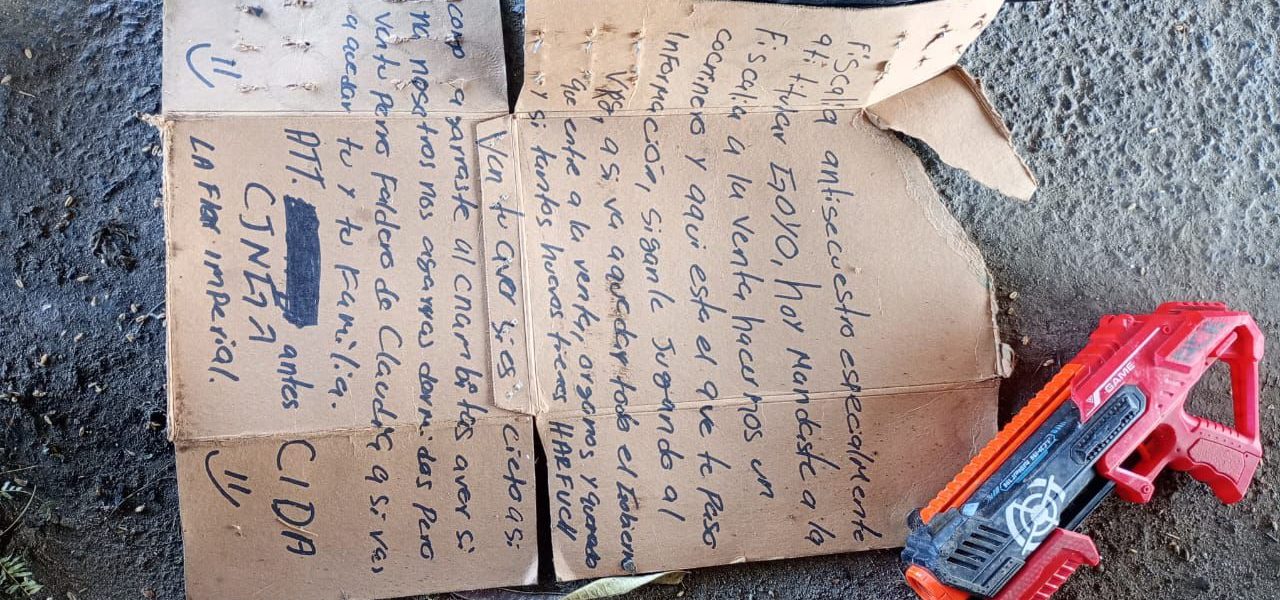 Fiscalia antisecuestro especalmente
a ti titular Igoyo, hoy Mandaste a la
Fiscalia a la venta hacernos un
cocinero y aqui esta el que te Paso
Información, siganle Jugando al
Vivo, a si va a quedar todo el
que entre a la venta, organos y quemado
y si tantos huevos tienes HARFUCH
Van tu aver si es cieto asi
como agarraste al chambitas aver si
na nosotros nos agarras dormidos pero
ven tu perro Faldero de Claudia a si vas
a quedar tu y tu Familia.
ATT. antes CIDA
LA Flor imperial.
GAME